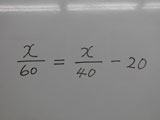 x/60 = x/40 - 20